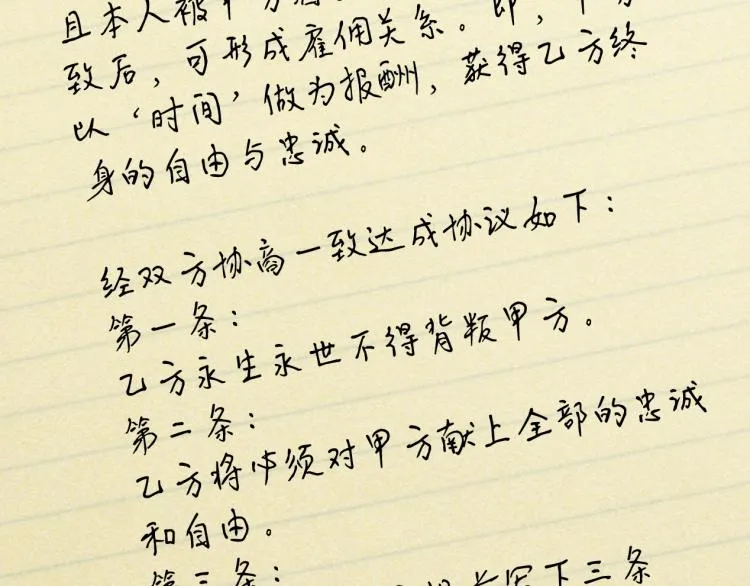 且本人被甲方
致后，可形成雇佣关系。即，甲方
以‘时间’做为报酬，获得乙方终
身的自由与忠诚。
经双方协商一致达成协议如下：
第一条：
乙方永生永世不得背叛甲方。
第二条：
乙方将必须对甲方献上全部的忠诚
和自由。
第三条：
下三条